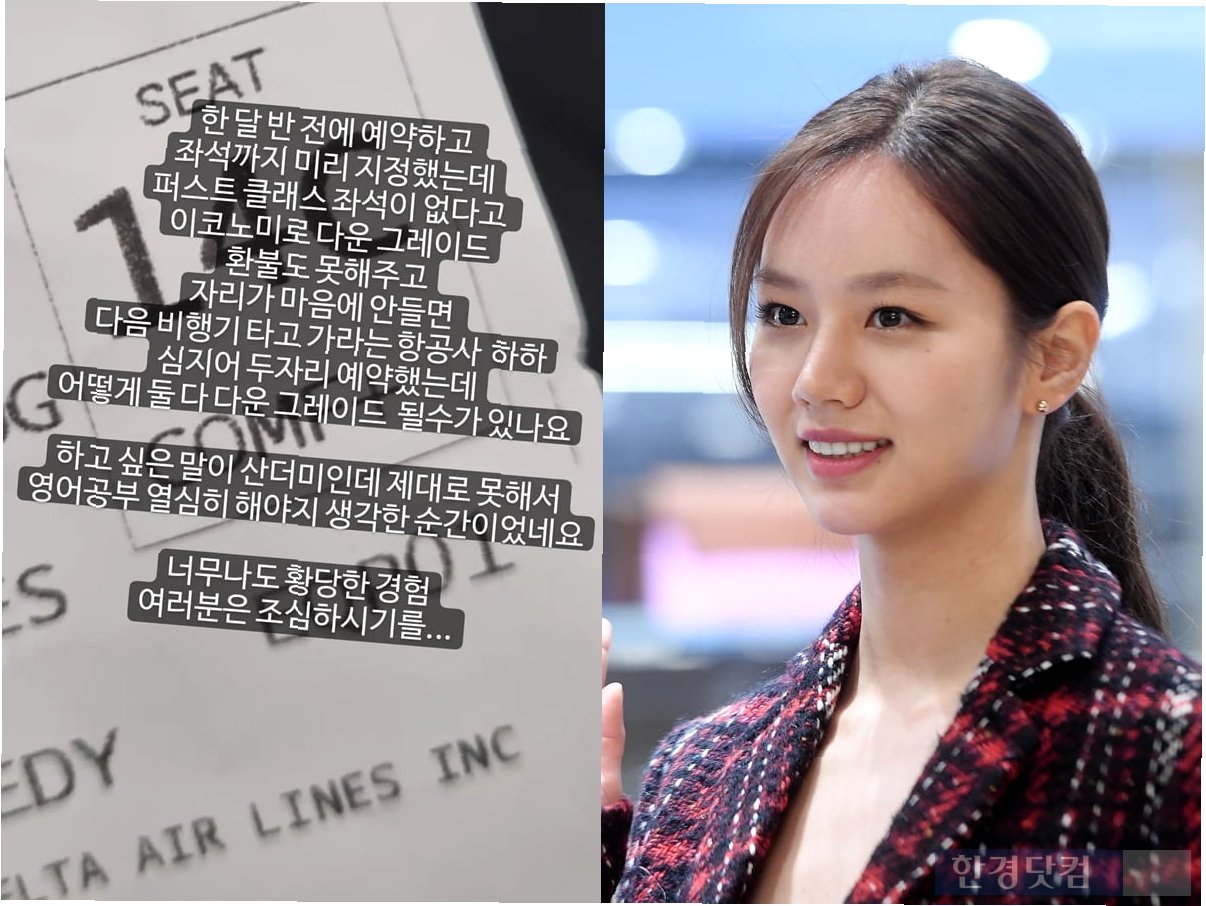 SEAT
14C
한 달 반 전에 예약하고
좌석까지 미리 지정했는데
퍼스트 클래스 좌석이 없다고
이코노미로 다운 그레이드
환불도 못해주고
자리가 마음에 안들면
다음 비행기 타고 가라는 항공사 하하
심지어 두자리 예약했는데
어떻게 둘 다 다운 그레이드 될수가 있나요
하고 싶은 말이 산더미인데 제대로 못해서
영어공부 열심히 해야지 생각한 순간이었네요
너무나도 황당한 경험
여러분은 조심하시기를...
EDY
ELTA AIR LINES INC
한경닷컴